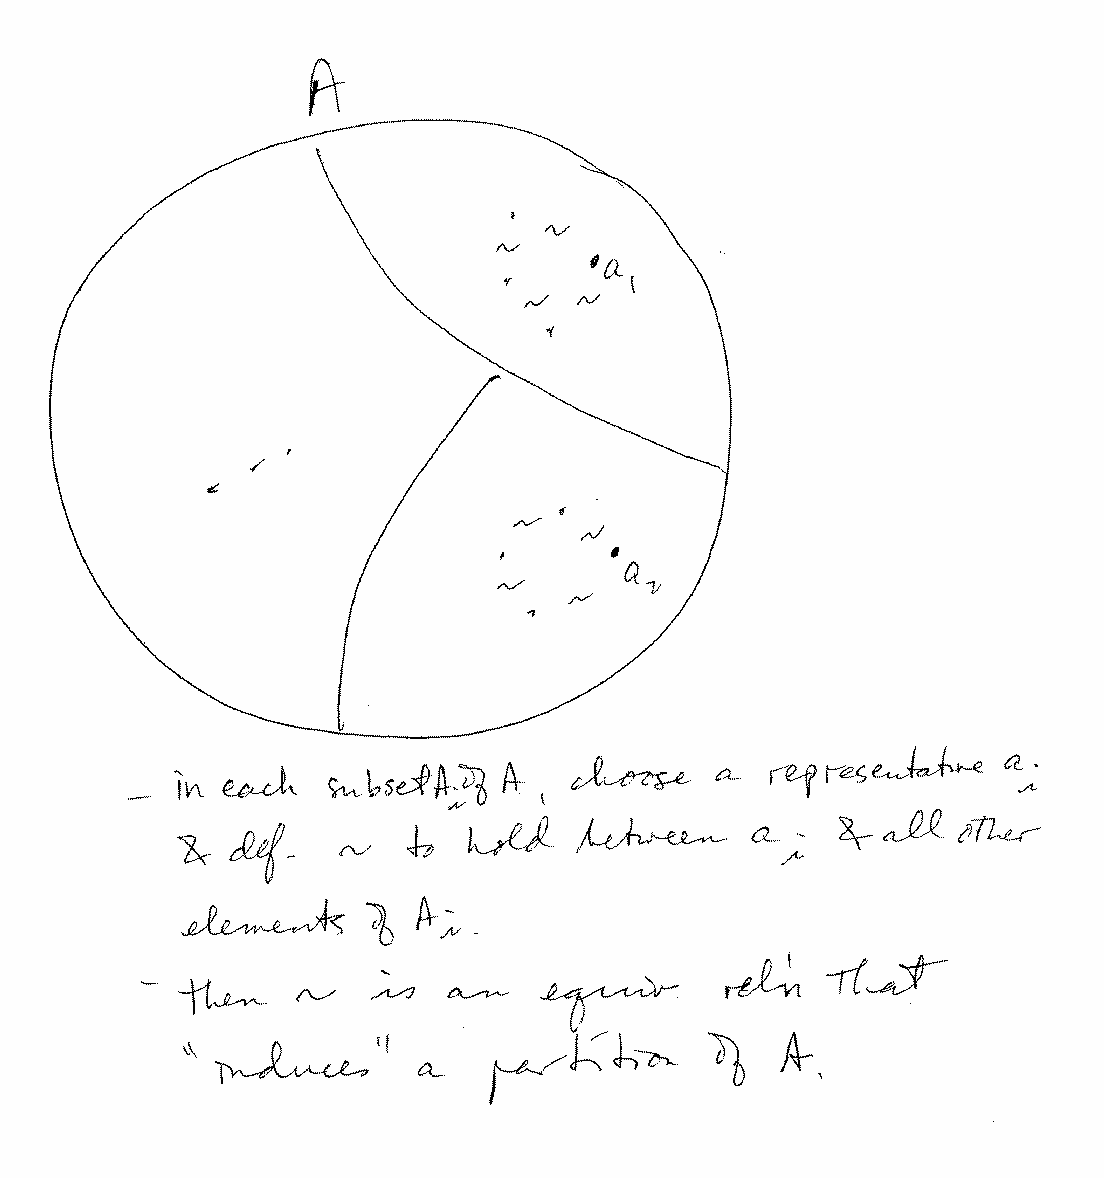 A
~ ~
a₁
~ ~
~ ~
a₂
~ ~
– in each subset Aᵢ of A, choose a representative aᵢ
& def. ~ to hold between aᵢ & all other
elements of Aᵢ.
– then ~ is an equiv. rel'n that
"induces" a partition of A.